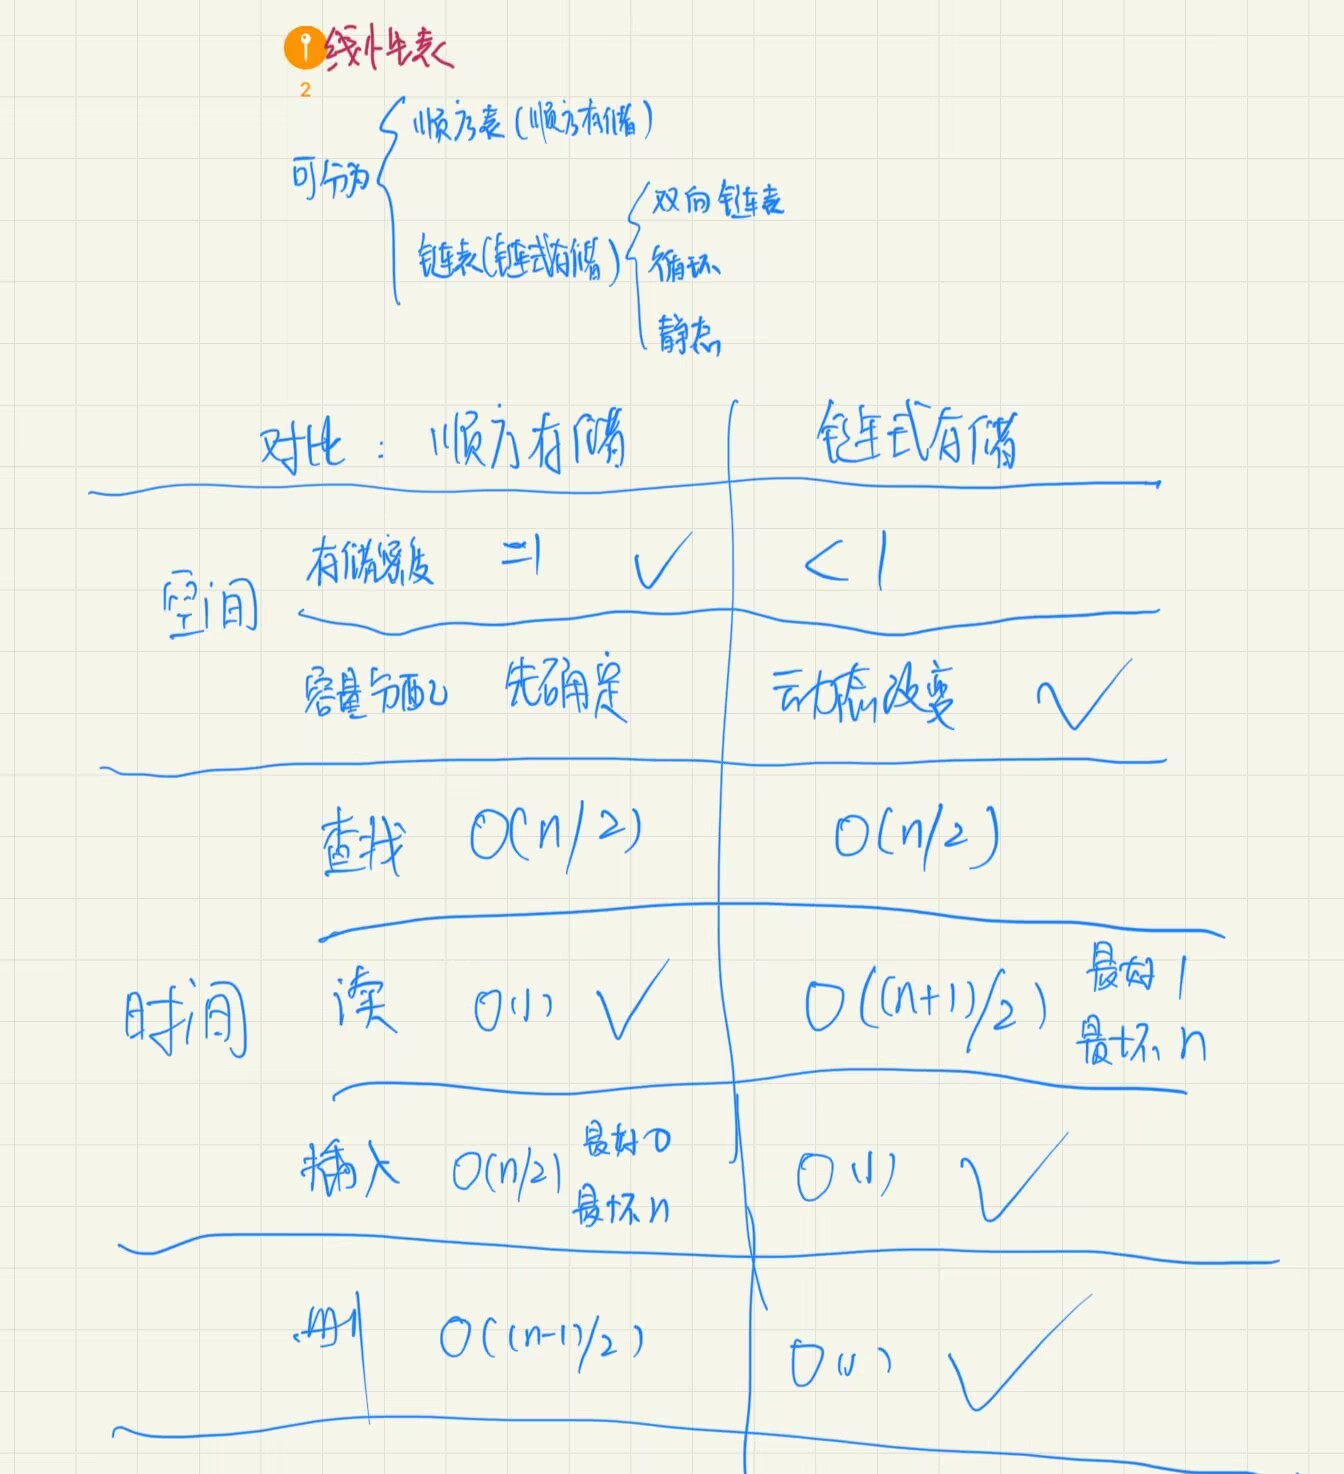 线性表
2
顺序表(顺序存储)
可分为
双向链表
链表(链式存储)
循环
静态
对比: 顺序存储 链式存储
存储密度 =1 ✓ <1
空间
容量分配 先确定 动态改变 ✓
查找 O(n/2) O(n/2)
时间 读 O(1) ✓ O((n+1)/2) 最好 1
最坏 n
插入 O(n/2) 最好 0 O(1) ✓
最坏 n
删 O((n-1)/2) O(1) ✓